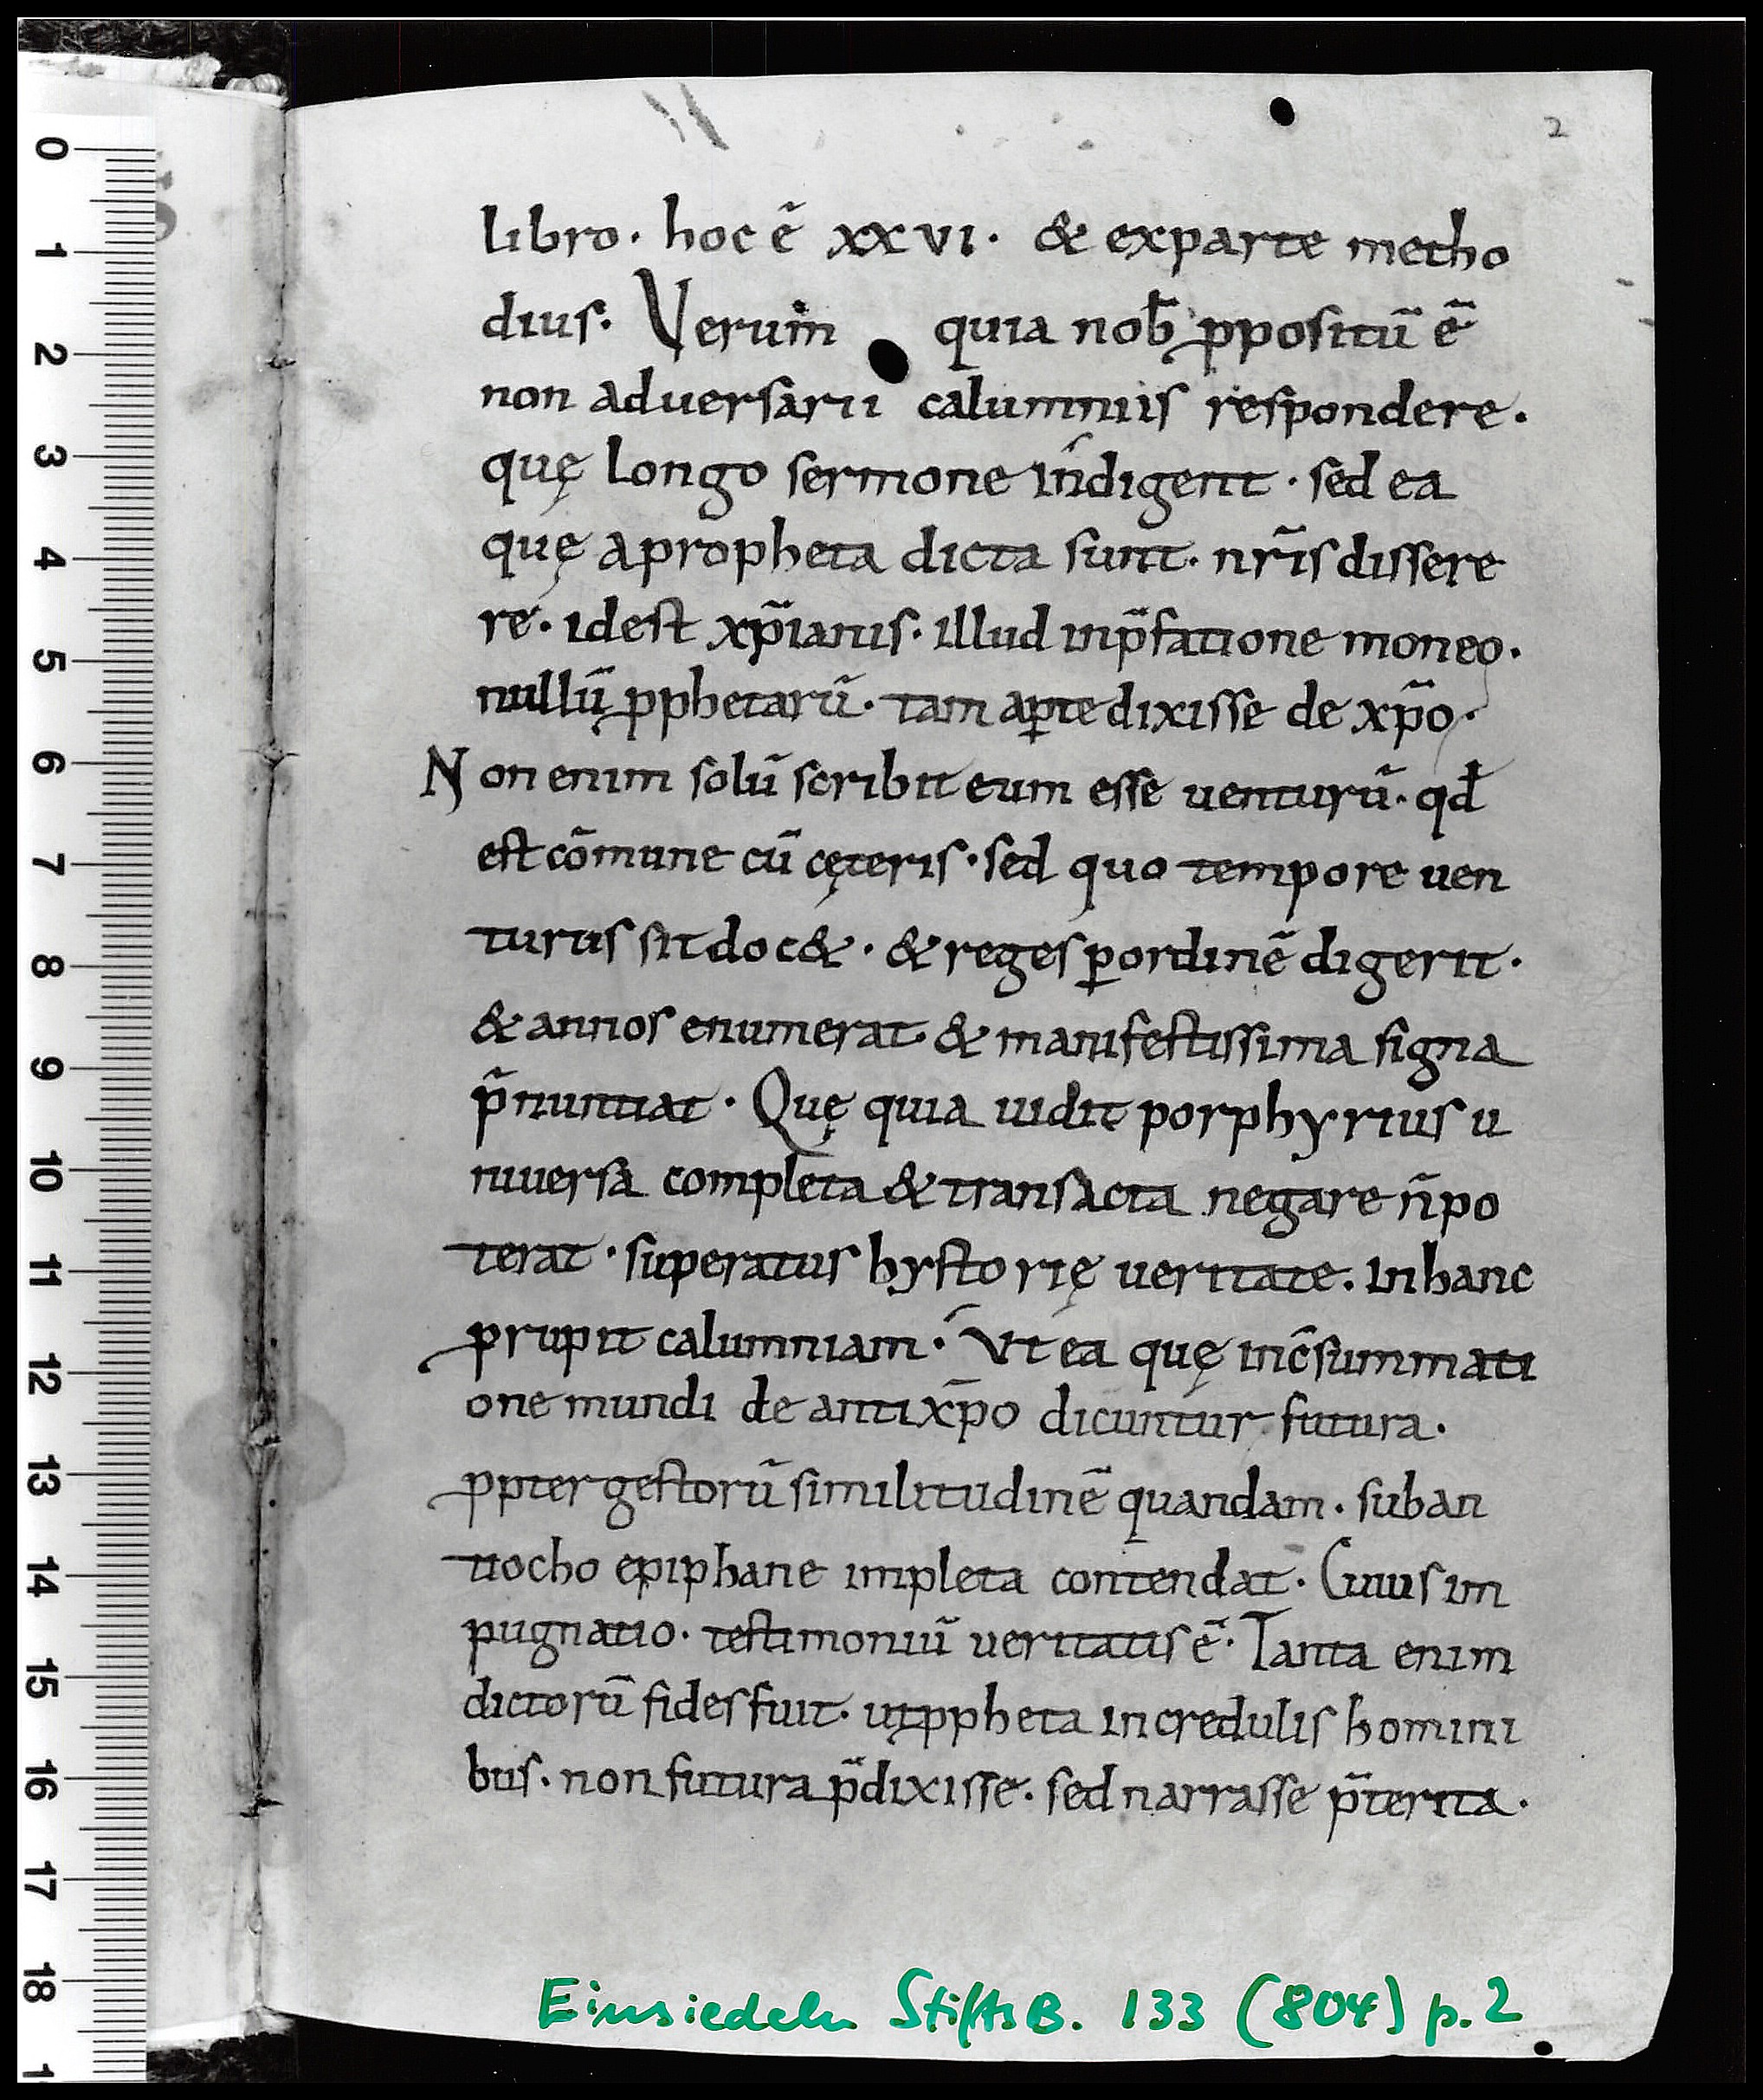 2
libro· hoc ē xxvi· & exparte metho
dius· Verum quia nob̄ ꝓpositū ē
non aduersarii calumniis respondere·
quę longo sermone indigent· sed ea
quę apropheta dicta sunt· nr̄is dissere
re· idest xp̄ianis· illud inp̄fatione moneo·
nullū ꝓphetarū· tam aꝑte dixisse de xp̄o·
Non enim solū scribit eum esse uenturū· qd̄
est cōmune cū cęteris· sed quo tempore uen
turus sit doc&· & reges ꝑordinē digerit·
& annos enumerat· & manifestissima signa
p̄nuntiat· Quę quia uidit porphyrius u
niuersa completa & transacta negare n̄ po
terat· superatus hystorię ueritate· inhanc
ꝓrupit calumniam· Vt ea quę inc̄summati
one mundi de antixp̄o dicuntur futura·
ꝓpter gestorū similitudinē quandam· suban
tiocho epiphane impleta contendat· Cuius im
pugnatio· testimoniū ueritatis ē· Tanta enim
dictorū fides fuit· utꝓpheta incredulis homini
bus· non futura p̄dixisse· sed narrasse p̄terita·
Einsiedeln StiftsB. 133 (804) p. 2
0
1
2
3
4
5
6
7
8
9
10
11
12
13
14
15
16
17
18
1